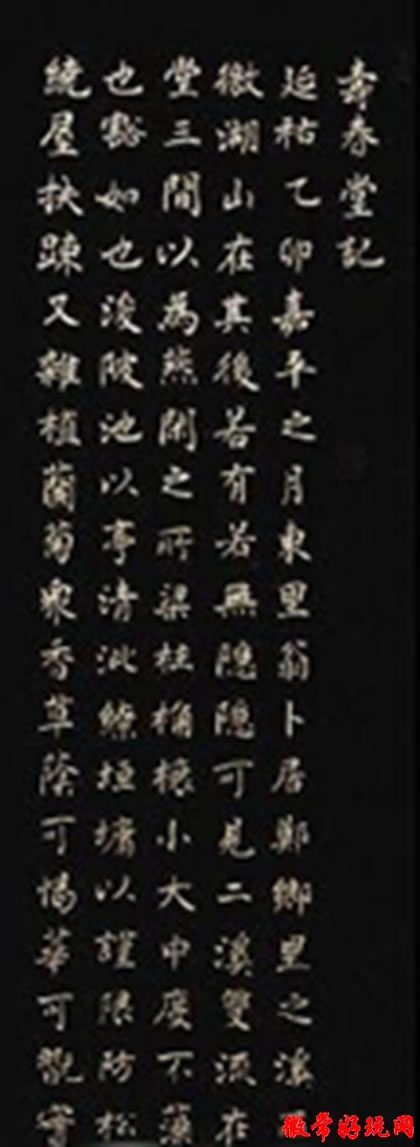 壽春堂記
延祐乙卯嘉平之月東里翁卜居鄭鄉里之溪
微湖山在其後若有若無隱隱可見二溪雙流在
堂三間以為燕閑之所梁柱桷榱小大中度不藻
也豁如也浚陂池以亭清泚繚垣墉以謹限防松
繞屋扶疎又雜植蘭菊眾香草蔭可憩華可翫
微常好玩网